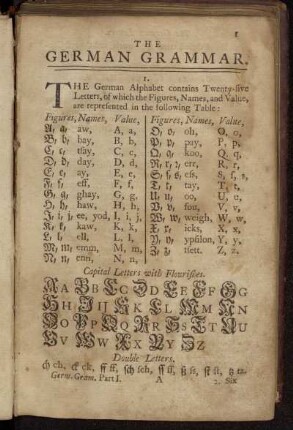 1
THE
GERMAN GRAMMAR.
I.
THE German Alphabet contains Twenty-five
Letters, of which the Figures, Names, and Value,
are represented in the following Table:
Figures, Names, Value,
A, a, aw, A, a,
B, b, bay, B, b,
C, c, tsay, C, c,
D, d, day, D, d,
E, e, ay, E, e,
F, f, eff, F, f,
G, g, ghay, G, g,
H, h, haw, H, h,
I, i, j, ee, yod, I, i, j,
K, k, kaw, K, k,
L, l, ell, L, l,
M, m, emm, M, m,
N, n, enn, N, n,
Figures, Names, Value,
O, o, oh, O, o,
P, p, pay, P, p,
Q, q, koo, Q, q,
R, r, err, R, r,
S, ſ, s, ess, S, ſ, s,
T, t, tay, T, t,
U, u, oo, U, u,
V, v, fou, V, v,
W, w, weigh, W, w,
X, x, icks, X, x,
Y, y, ypsilon, Y, y,
Z, z, tsett, Z, z.
Capital Letters with Flourishes.
A A B B C C D D E E F F G G
H H I J J K K L L M M N N
O O P P Q Q R R S S T T U U
V V W W X X Y Y Z Z
Double Letters.
ch ch, ck ck, ff ff, ſch ſch, ſſ ſſ, ß ſz, ſt ſt, tz tz
Germ. Gram. Part I. A 2. Six